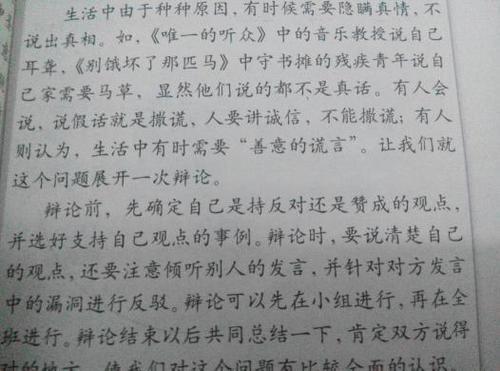 生活中由于种种原因,有时候需要隐瞒真情,不
说出真相。如,《唯一的听众》中的音乐教授说自己
耳聋,《别饿坏了那匹马》中守书摊的残疾青年说自
己家需要马草,显然他们说的都不是真话。有人会
说,说假话就是撒谎,人要讲诚信,不能撒谎;有人
则认为,生活中有时需要“善意的谎言”。让我们就
这个问题展开一次辩论。
辩论前,先确定自己是持反对还是赞成的观点,
并选好支持自己观点的事例。辩论时,要说清楚自己
的观点,还要注意倾听别人的发言,并针对对方发言
中的漏洞进行反驳。辩论可以先在小组进行,再在全
班进行。辩论结束以后共同总结一下,肯定双方说得
对的地方,使我们对这个问题有比较全面的认识。